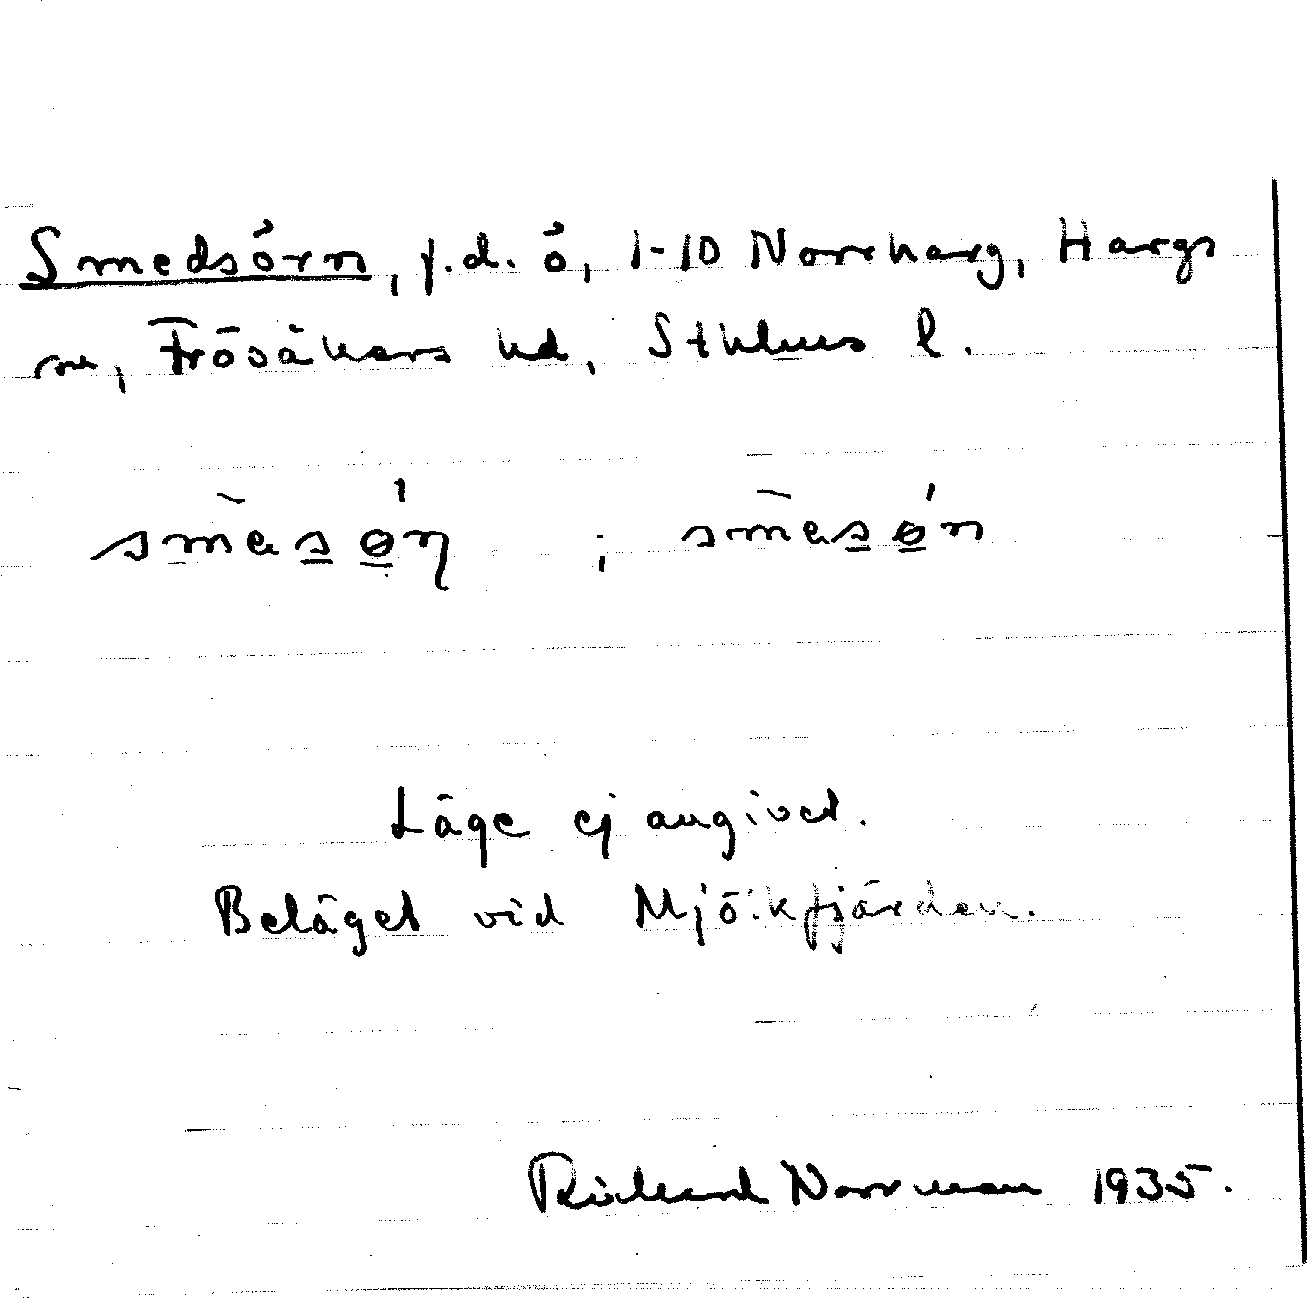 Smedsörn, f.d. ö, 1-10 Norrharg, Hargs
sn, Frösåkers hd, Sthlms l.
smesøn ; smesøn
Läge ej angivet.
Beläget vid Mjölkfjärden.
Rickard Norrman 1935.